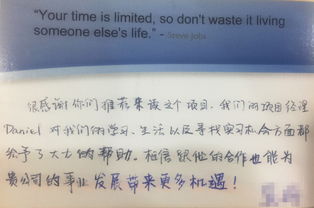 "Your time is limited, so don't waste it living
someone else's life." - Steve Jobs
很感谢你们推荐集谈这个项目. 我们的项目经理
Daniel 对我们的学习、生活以及寻找实习机会方面都
给予了大大的帮助. 相信跟他的合作也能为
贵公司的事业发展带来更多机遇！